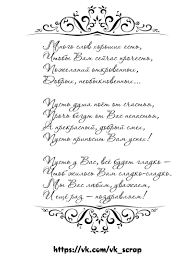 Много слов хороших есть,
Чтобы Вам сейчас прочесть,
Пожеланий откровенных,
Добрых, необыкновенных...
Пусть душа поёт от счастья,
Прочь бегут от Вас ненастья,
А прекрасный, добрый смех,
Пусть приносит Вам успех!
Пусть у Вас, всё будет гладко –
Чтоб жилось Вам сладко-сладко.
Мы Вас любим, уважаем,
И ещё раз – поздравляем!
https://vk.com/vk_scrap